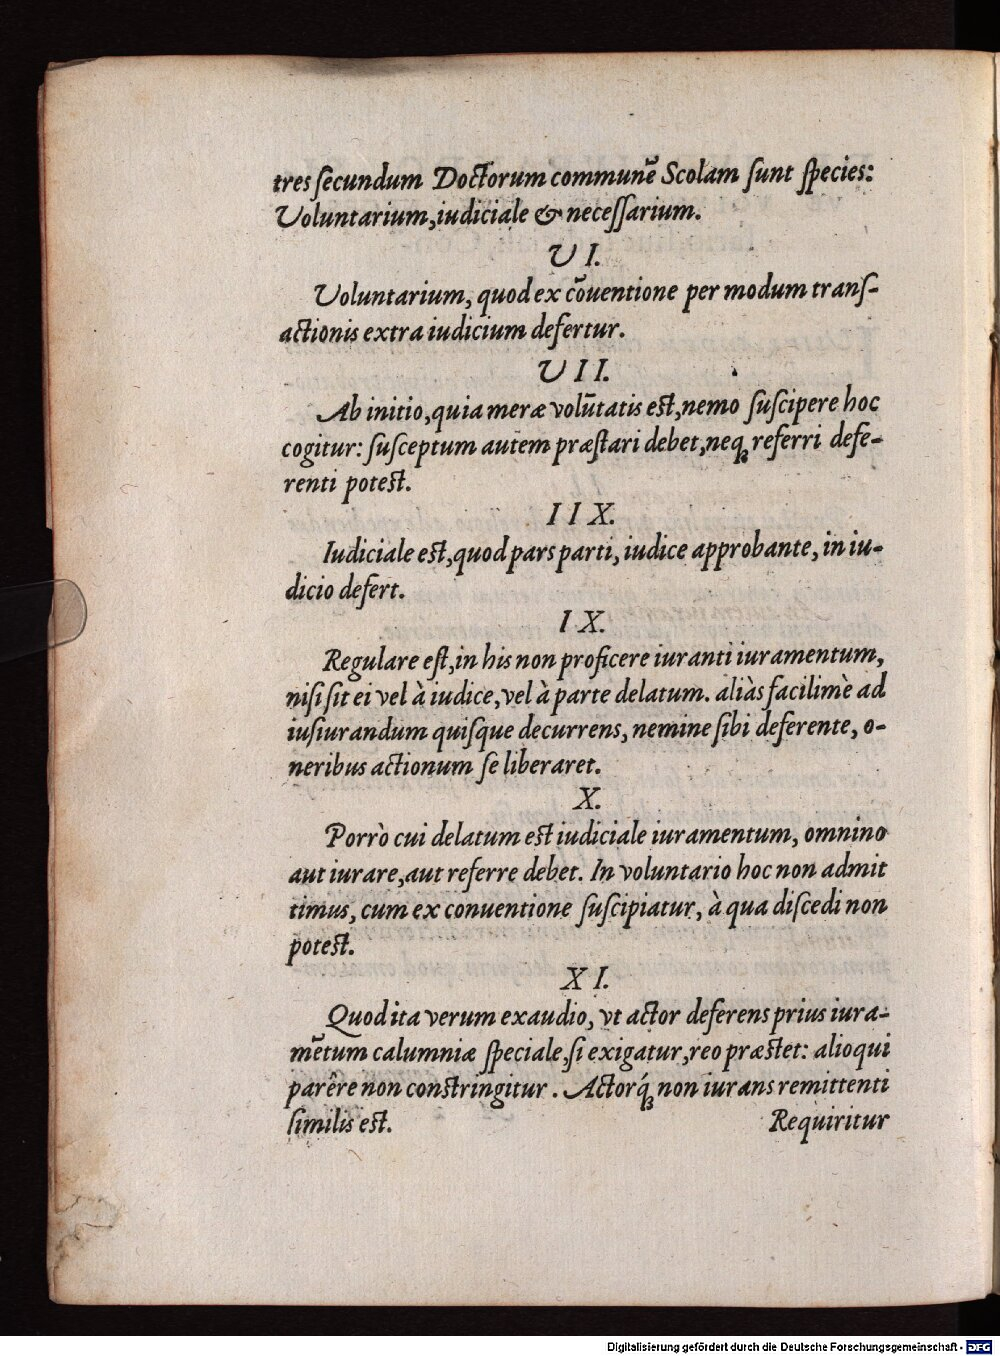 tres secundum Doctorum communē Scolam sunt species:
Voluntarium, iudiciale & necessarium.
VI.
Voluntarium, quod ex cōuentione per modum trans-
actionis extra iudicium defertur.
VII.
Ab initio, quia meræ volūtatis est, nemo suscipere hoc
cogitur: susceptum autem præstari debet, neq; referri defe-
renti potest.
IIX.
Iudiciale est, quod pars parti, iudice approbante, in iu-
dicio defert.
IX.
Regulare est, in his non proficere iuranti iuramentum,
nisi sit ei vel à iudice, vel à parte delatum. aliàs facilimè ad
iusiurandum quisque decurrens, nemine sibi deferente, o-
neribus actionum se liberaret.
X.
Porrò cui delatum est iudiciale iuramentum, omnino
aut iurare, aut referre debet. In voluntario hoc non admit
timus, cum ex conuentione suscipiatur, à qua discedi non
potest.
XI.
Quod ita verum exaudio, vt actor deferens prius iura-
mētum calumniæ speciale, si exigatur, reo præstet: alioqui
parêre non constringitur. Actorq́; non iurans remittenti
similis est.
Requiritur
Digitalisierung gefördert durch die Deutsche Forschungsgemeinschaft - DFG